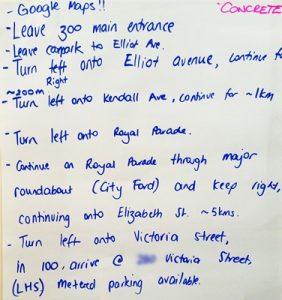 - Google Maps!!
CONCRETE
- Leave 300 main entrance
- Leave carpark to Elliot Ave.
- Turn left onto Elliot avenue, continue f
Right
~200m
- Turn left onto Kendall Ave, continue for ~1km
- Turn left onto Royal Parade.
- Continue on Royal Parade through major
roundabout (City Ford) and keep right,
continuing onto Elizabeth St. ~5kms.
- Turn left onto Victoria Street,
in 100, arrive @ Victoria Street,
(LHS) metered parking available.